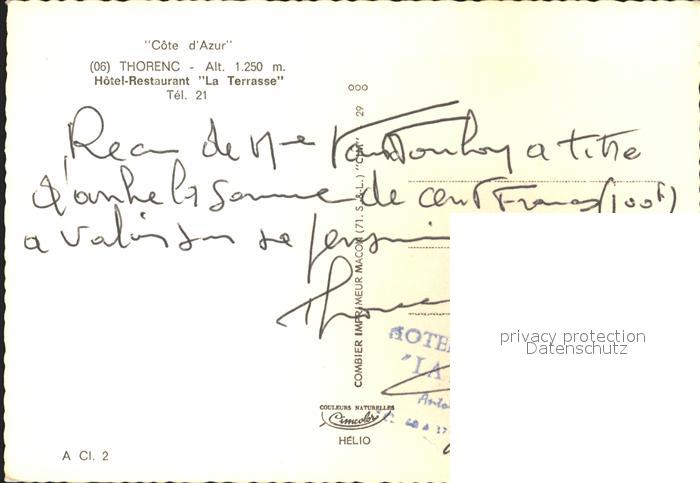 "Côte d'Azur"
(06) THORENC - Alt. 1.250 m.
Hôtel-Restaurant "La Terrasse"
Tél. 21
Recu de Mme a titre
d'arrhe la somme de cent Francs (100f)
a valoir sur sa pension
Thorenc
COMBIER IMPRIMEUR MACON (71. S.-&-L.) "CIM" 29 000
HOTEL
"LA
Anto
COULEURS NATURELLES
Cimcolor
HÉLIO
A Cl. 2
privacy protection
Datenschutz